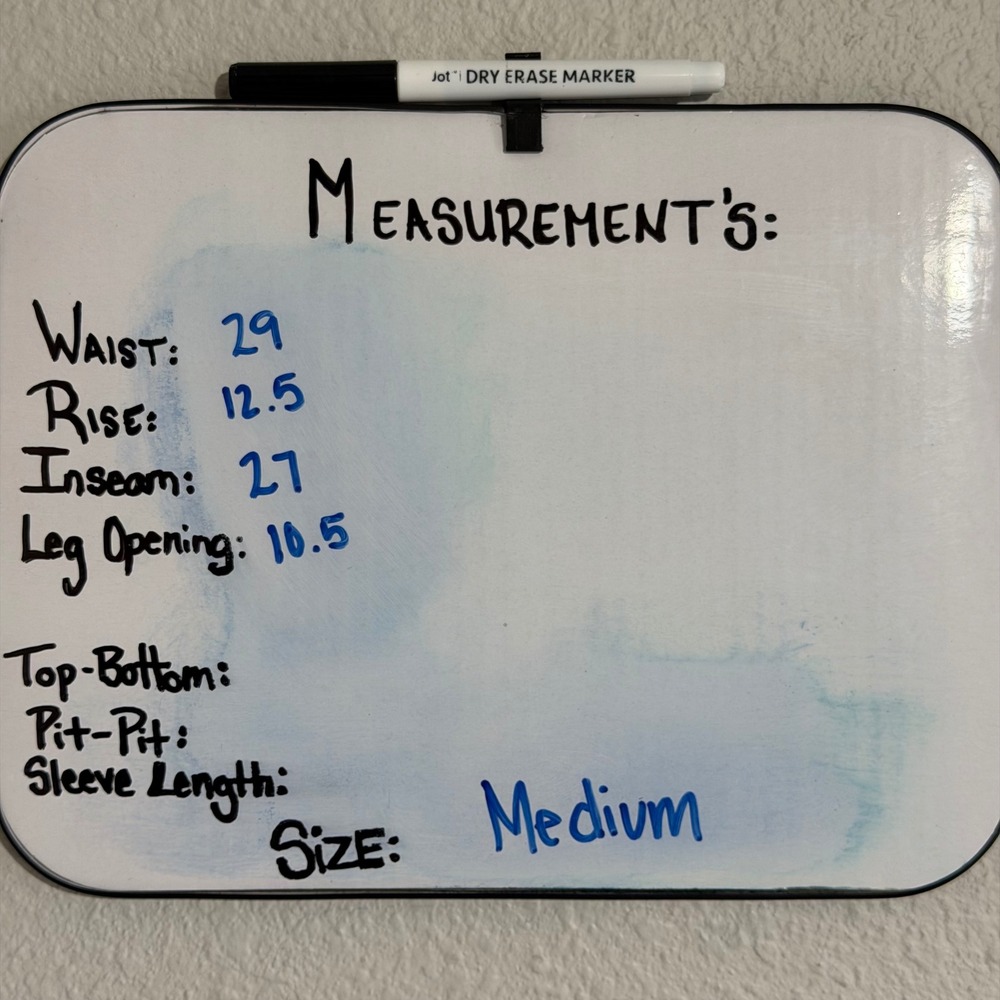 Jot™ DRY ERASE MARKER
MEASUREMENT'S:
WAIST: 29
RISE: 12.5
Inseam: 27
Leg Opening: 10.5
Top-Bottom:
Pit-Pit:
Sleeve Length:
SiZE: Medium